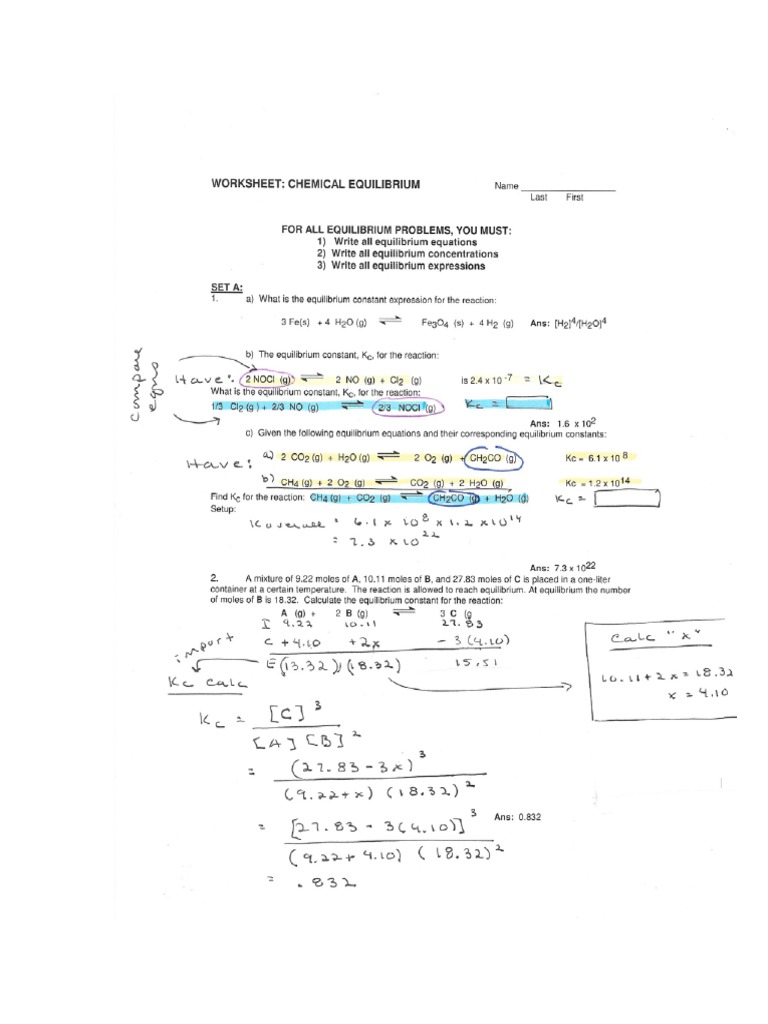 WORKSHEET: CHEMICAL EQUILIBRIUM Name
Last First
FOR ALL EQUILIBRIUM PROBLEMS, YOU MUST:
1) Write all equilibrium equations
2) Write all equilibrium concentrations
3) Write all equilibrium expressions
SET A:
1. a) What is the equilibrium constant expression for the reaction:
3 Fe(s) + 4 H2O (g) ⇌ Fe3O4 (s) + 4 H2 (g) Ans: [H2]4/[H2O]4
compare eqns
b) The equilibrium constant, Kc, for the reaction:
Have: 2 NOCl (g) ⇌ 2 NO (g) + Cl2 (g) is 2.4 x 10 -7 = Kc
What is the equilibrium constant, Kc, for the reaction:
1/3 Cl2 (g) + 2/3 NO (g) ⇌ 2/3 NOCl (g) Kc =
Ans: 1.6 x 10 2
c) Given the following equilibrium equations and their corresponding equilibrium constants:
Have: a) 2 CO2 (g) + H2O (g) ⇌ 2 O2 (g) + CH2CO (g) Kc = 6.1 x 10 8
b) CH4 (g) + 2 O2 (g) ⇌ CO2 (g) + 2 H2O (g) Kc = 1.2 x 10 14
Find Kc for the reaction: CH4 (g) + CO2 (g) ⇌ CH2CO (g) + H2O (g) Kc =
Setup:
K overall = 6.1 x 10 8 x 1.2 x 10 14
= 7.3 x 10 22
Ans: 7.3 x 10 22
2. A mixture of 9.22 moles of A, 10.11 moles of B, and 27.83 moles of C is placed in a one-liter
container at a certain temperature. The reaction is allowed to reach equilibrium. At equilibrium the number
of moles of B is 18.32. Calculate the equilibrium constant for the reaction:
A (g) + 2 B (g) ⇌ 3 C (g
I 9.22 10.11 27.83
C +4.10 +2x - 3(4.10)
E (13.32) (18.32) 15.51
import
Kc calc
Calc "x"
10.11+2x=18.32
x = 4.10
Kc = [C] 3
[A] [B] 2
= (27.83 - 3x) 3
(9.22+x) (18.32) 2
= [27.83 - 3(4.10)] 3 Ans: 0.832
(9.22+ 4.10) (18.32) 2
= .832